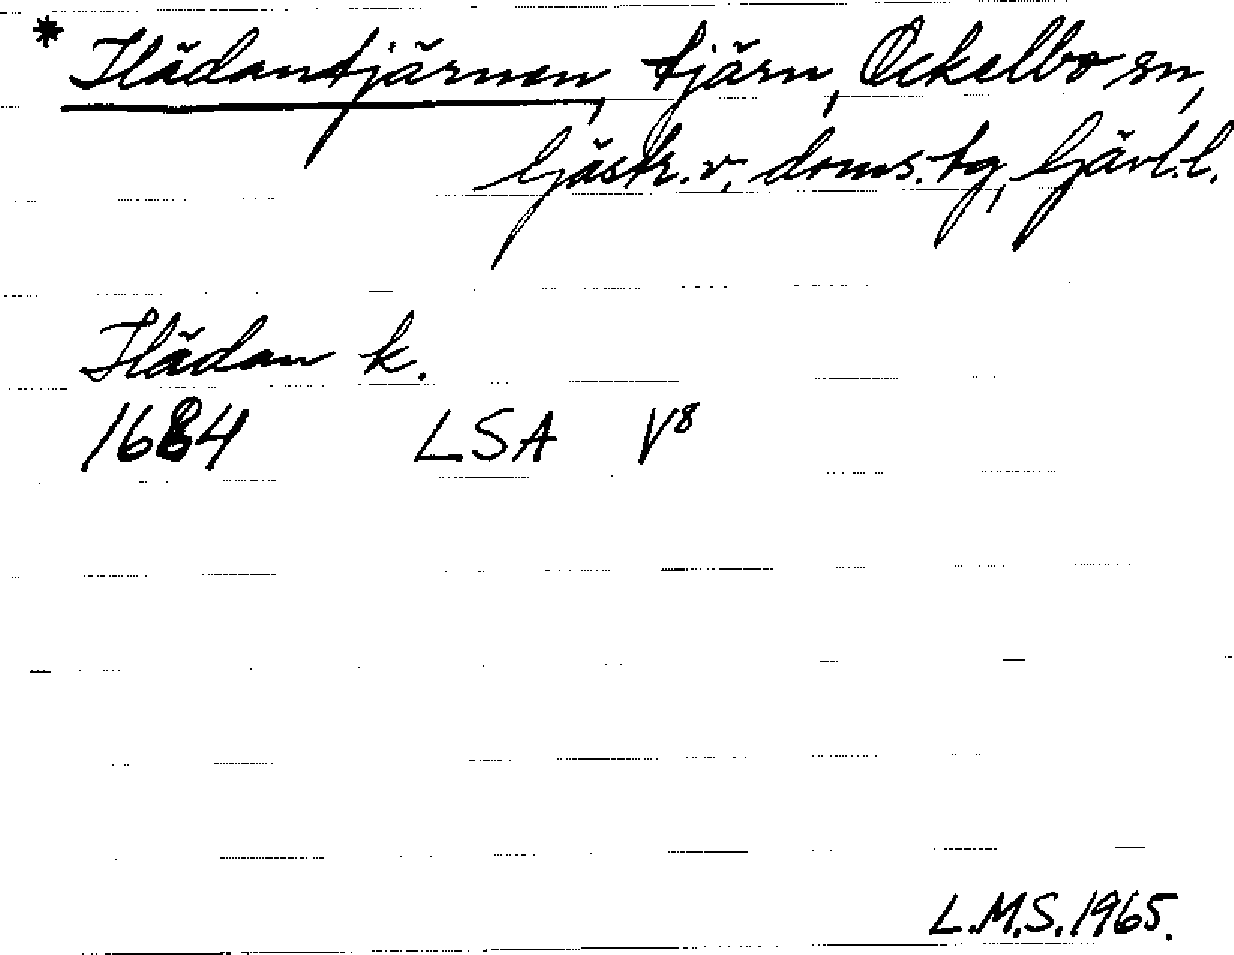 * Ilådantjärnen, tjärn, Ockelbo sn,
Gästr. v. doms. tg, Gävl. l.
Ilådan k.
1684 LSA V⁸
L.M.S. 1965.